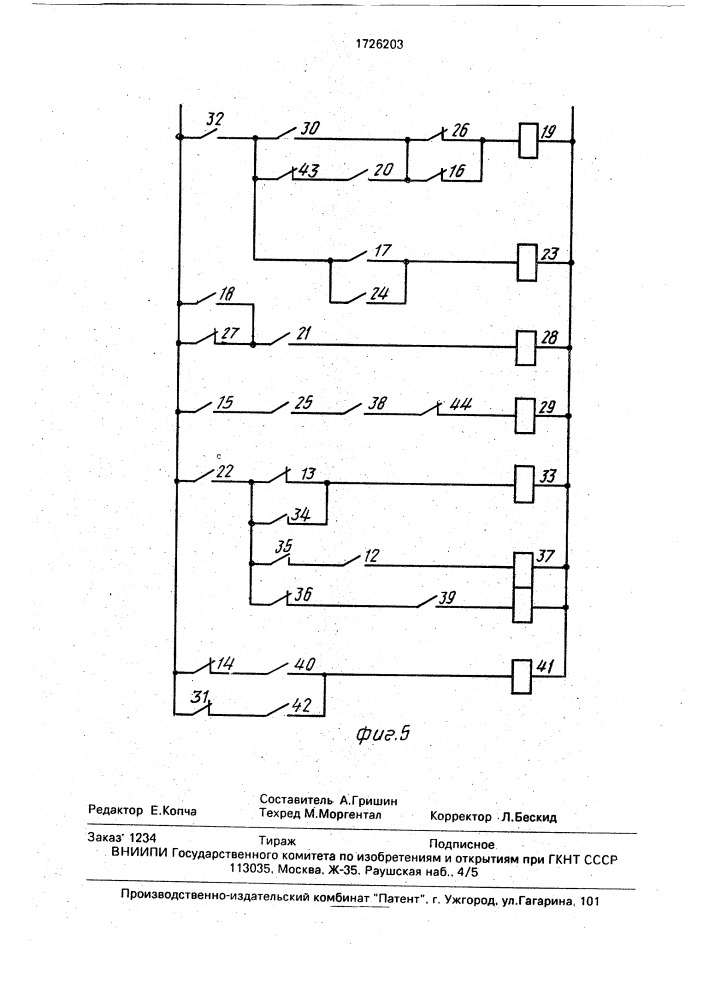 1726203
32 30 26 19
43 20 16
17 23
24
18
27 21 28
15 25 38 44 29
22 13 33
34
35 12 37
36 39
14 40 41
31 42
фиг.5
Составитель А.Гришин
Редактор Е.Копча Техред М.Моргентал Корректор Л.Бескид
Заказ 1234 Тираж Подписное
ВНИИПИ Государственного комитета по изобретениям и открытиям при ГКНТ СССР
113035, Москва, Ж-35, Раушская наб., 4/5
Производственно-издательский комбинат "Патент", г. Ужгород, ул.Гагарина, 101